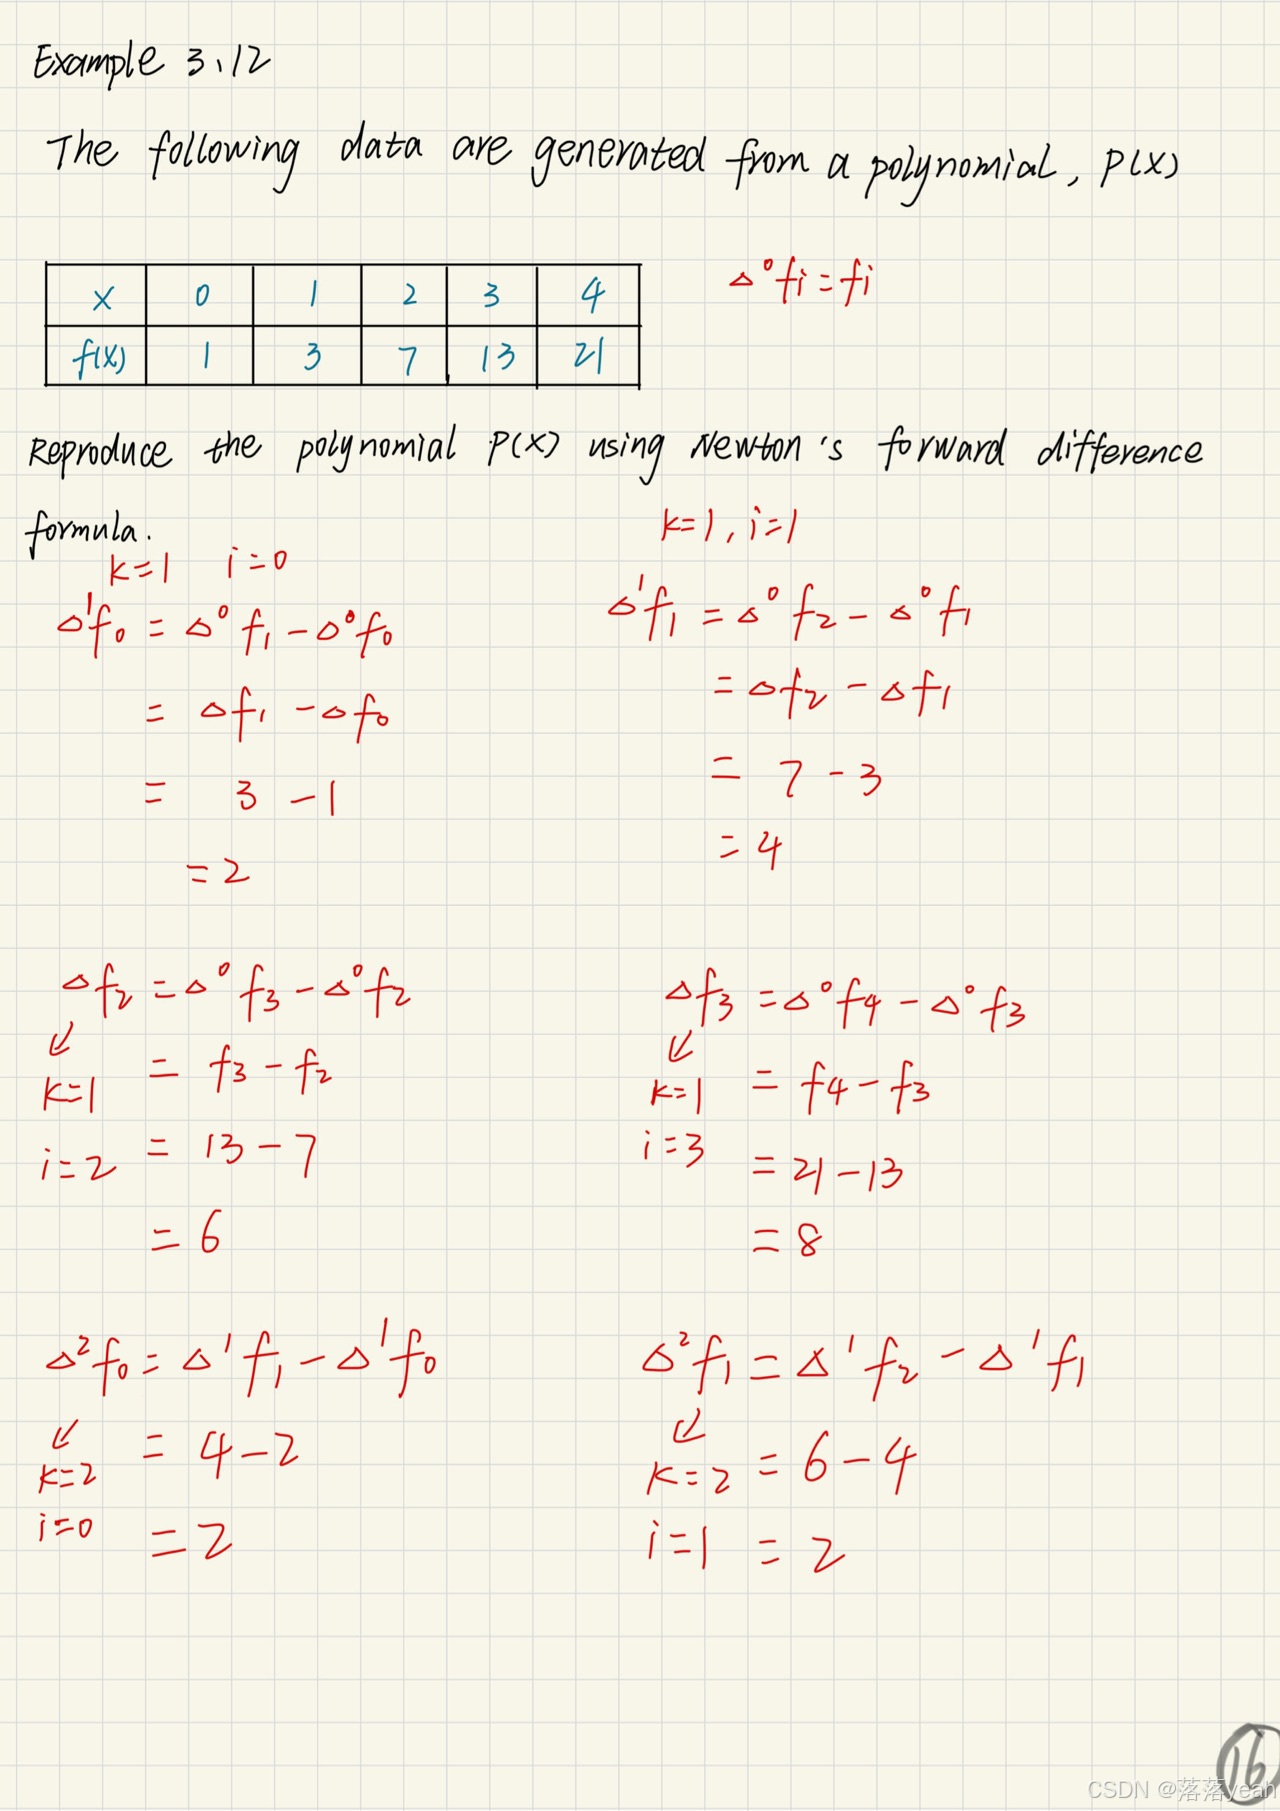 Example 3.12
The following data are generated from a polynomial, P(X)
Δ⁰fi = fi
x 0 1 2 3 4
f(x) 1 3 7 13 21
Reproduce the polynomial P(X) using Newton's forward difference
formula.
k=1 i=0
Δ¹f₀ = Δ⁰f₁ - Δ⁰f₀
= Δf₁ - Δf₀
= 3 - 1
= 2
k=1, i=1
Δ¹f₁ = Δ⁰f₂ - Δ⁰f₁
= Δf₂ - Δf₁
= 7 - 3
= 4
Δf₂ = Δ⁰f₃ - Δ⁰f₂
↙
k=1 = f₃ - f₂
i=2 = 13 - 7
= 6
Δf₃ = Δ⁰f₄ - Δ⁰f₃
↙
k=1 = f₄ - f₃
i=3 = 21 - 13
= 8
Δ²f₀ = Δ¹f₁ - Δ¹f₀
↙
k=2 = 4 - 2
i=0 = 2
Δ²f₁ = Δ¹f₂ - Δ¹f₁
↙
k=2 = 6 - 4
i=1 = 2
16
CSDN @落落yeah